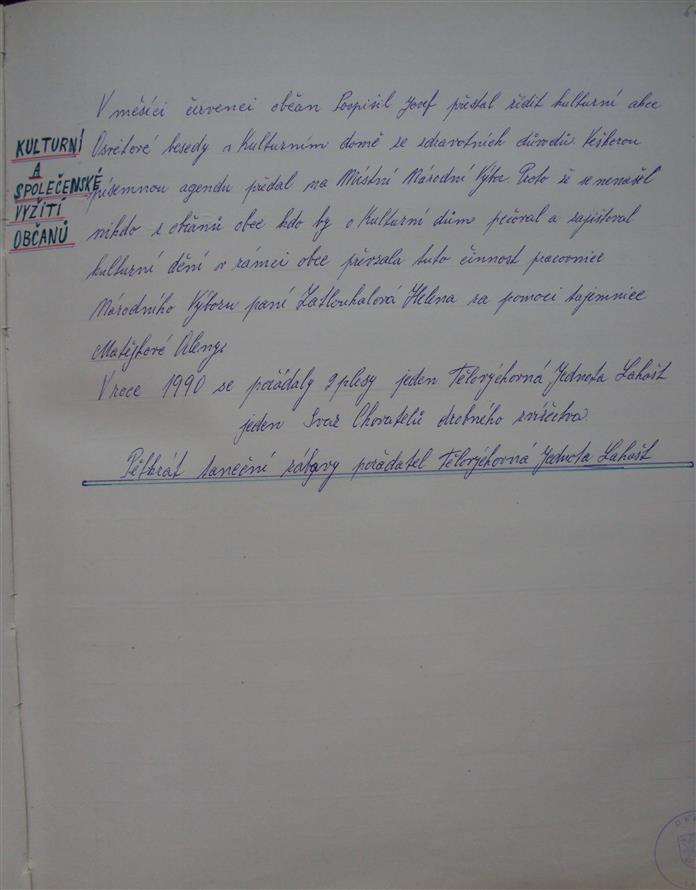 KULTURNÍ
A
SPOLEČENSKÉ
VYŽITÍ
OBČANŮ
V měsíci červenci občan Pospíšil Josef přestal řídit kulturní akce
Osvětové besedy v Kulturním domě se zdravotních důvodů. Veškerou
písemnou agendu předal na Místní Národní Výbor. Proto že se nenašel
nikdo z občanů obce kdo by o Kulturní dům pečoval a zajišťoval
kulturní dění v rámci obce převzala tuto činnost pracovnice
Národního Výboru paní Zatloukalová Helena za pomoci tajemnice
Matějkové Aleny.
V roce 1990 se pořádaly 2 plesy jeden Tělovýchovná Jednota Lahošť
jeden Svaz Chovatelů drobného zvířectva.
Pětkrát taneční zábavy pořadatel Tělovýchovná Jednota Lahošť